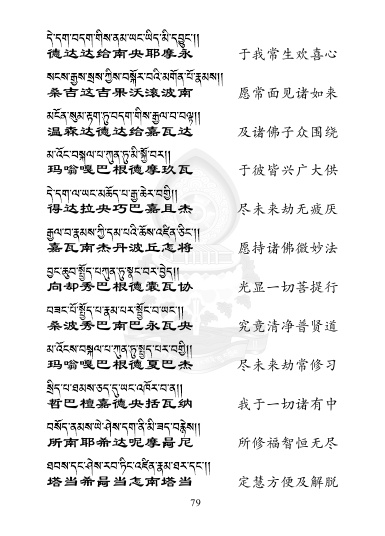 དེ་དག་བདག་གིས་ནམ་ཡང་ཡིད་མི་དབྱུང་།།
德达达给南央耶摩永 于我常生欢喜心
སངས་རྒྱས་སྲས་ཀྱིས་བསྐོར་བའི་མགོན་པོ་རྣམས།།
桑吉这吉果沃滚波南 愿常面见诸如来
མངོན་སུམ་རྟག་ཏུ་བདག་གིས་རྒྱལ་བ་བལྟ།།
温森达德达给嘉瓦达 及诸佛子众围绕
མ་འོངས་བསྐལ་པ་ཀུན་ཏུ་མི་སྐྱོ་བར།།
玛嗡嘎巴根德摩玖瓦 于彼皆兴广大供
དེ་དག་ལ་ཡང་མཆོད་པ་རྒྱ་ཆེར་བགྱི།།
得达拉央巧巴嘉且杰 尽未来劫无疲厌
རྒྱལ་བ་རྣམས་ཀྱི་དམ་པའི་ཆོས་འཛིན་ཅིང་།།
嘉瓦南杰丹波丘怎将 愿持诸佛微妙法
བྱང་ཆུབ་སྤྱོད་པ་ཀུན་ཏུ་སྣང་བར་བྱེད།།
向却秀巴根德囊瓦协 光显一切菩提行
བཟང་པོ་སྤྱོད་པ་རྣམ་པར་སྦྱོང་བ་ཡང་།།
桑波秀巴南巴永瓦央 究竟清净普贤道
མ་འོངས་བསྐལ་པ་ཀུན་ཏུ་སྤྱད་པར་བགྱི།།
玛嗡嘎巴根德夏巴杰 尽未来劫常修习
སྲིད་པ་ཐམས་ཅད་དུ་ཡང་འཁོར་བ་ན།།
哲巴檀嘉德央括瓦纳 我于一切诸有中
བསོད་ནམས་ཡེ་ཤེས་དག་ནི་མི་ཟད་བརྙེས།།
所南耶希达呢摩曷尼 所修福智恒无尽
ཐབས་དང་ཤེས་རབ་ཏིང་འཛིན་རྣམ་ཐར་དང་།།
塔当希曷当怎南塔当 定慧方便及解脱
79